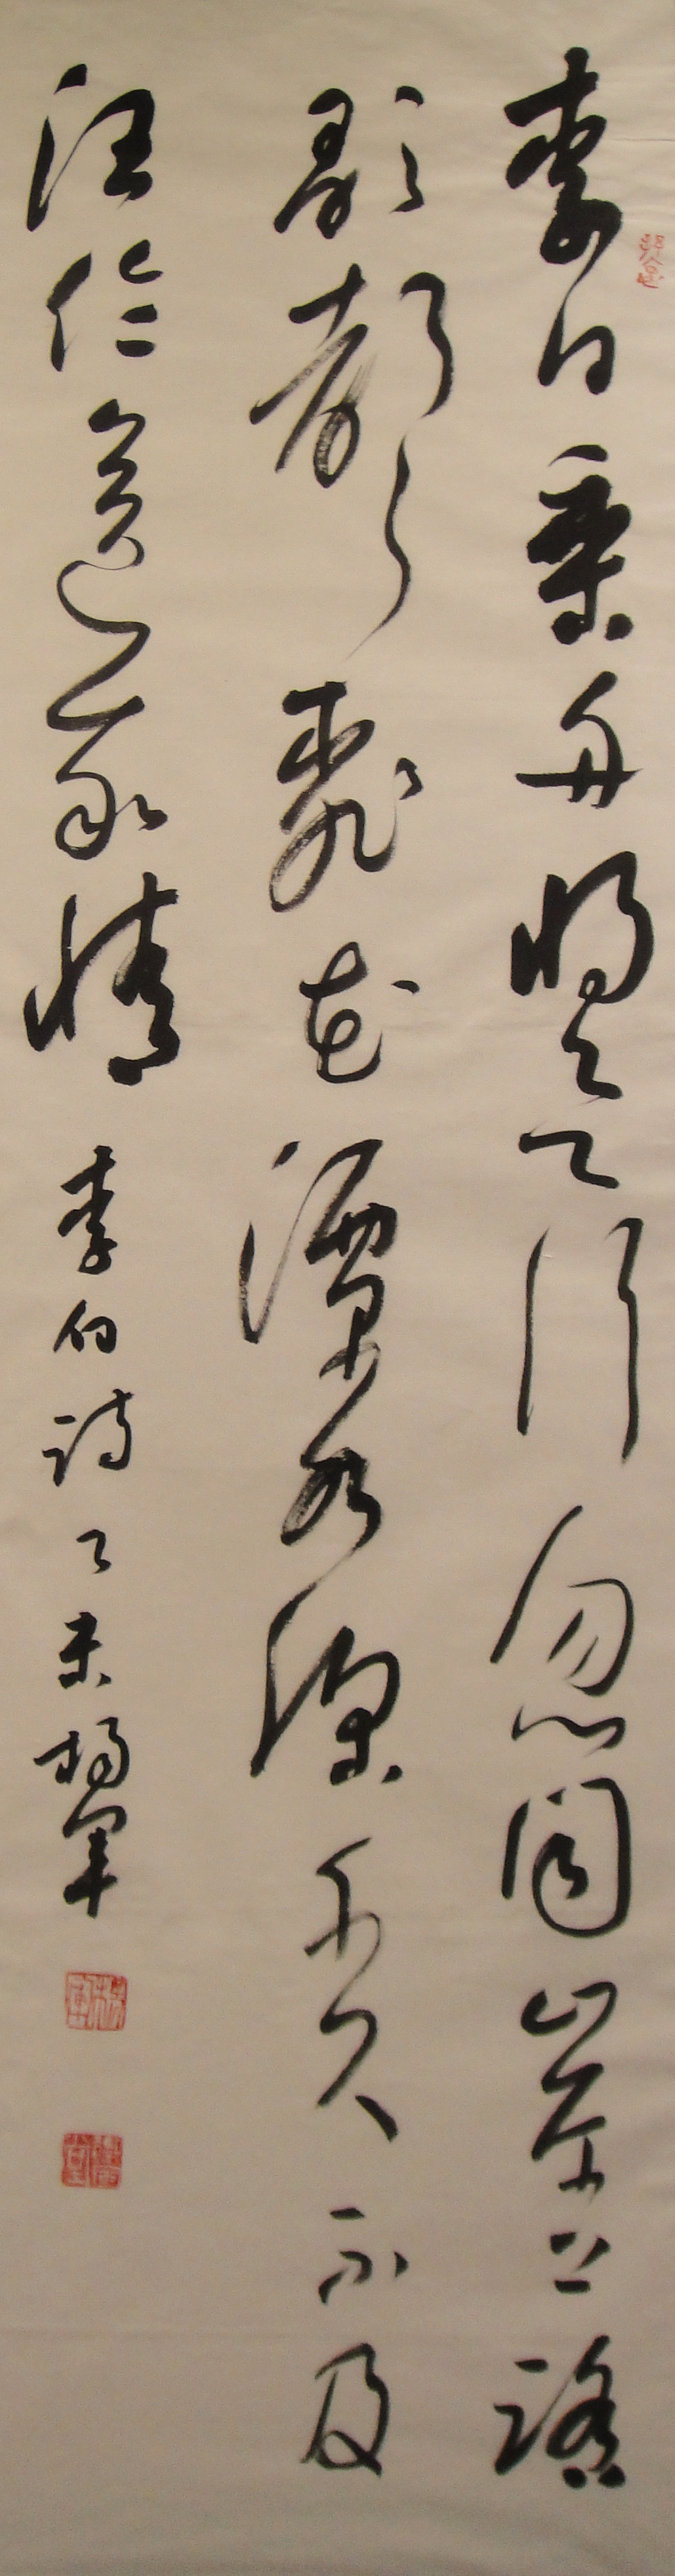 李白乘舟將欲行忽聞岸上踏
歌聲桃花潭水深千尺不及
汪倫送我情李白詩乙未楊軍